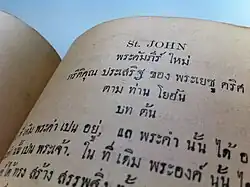 St. JOHN
พระคัมภีร์ ใหม่
กรีติคุณ ประเสริฐ ของ พระเยซู คริศ
ตาม ท่าน โยฮัน
บท ต้น
พระคำ เปน อยู่, แล พระคำ นั้น ได้ อ
เปน พระเจ้า. ใน ที่ เดิม พระองค์ นั้น ไ
ได้ ทรง สร้าง สรรพสิ่ง